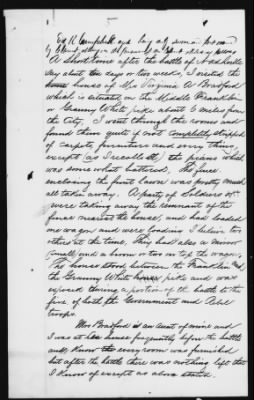 Ed R Campbell
A short time after the battle of Nashville
say about ten days or two weeks, I visited the
house of Mrs Virginia A Bradford
which is situated on the Middle Franklin
or Granny White pike about 5 miles from
the City. I went through the rooms and
found them quite if not completely stripped
of carpets, furniture and every thing,
except (as I recollect) the piano which
was some what battered. The fence
enclosing the front lawn was pretty much
all taken away. A party of Soldiers
were taking away the remnant of the
fence nearest the house, and had loaded
one wagon and were loading I believe two
others at the time. They had also a mirror
(small) and a broom or two on top the wagon.
The house stood between the Franklin and
the Granny White pike and was
exposed during a portion of the battle to the
fire of both the Government and Rebel
troops.
Mrs Bradford is an aunt of mine and
I was at her house frequently before the battle
and know that every room was furnished
but after the battle there was nothing left that
I know of except as above stated.